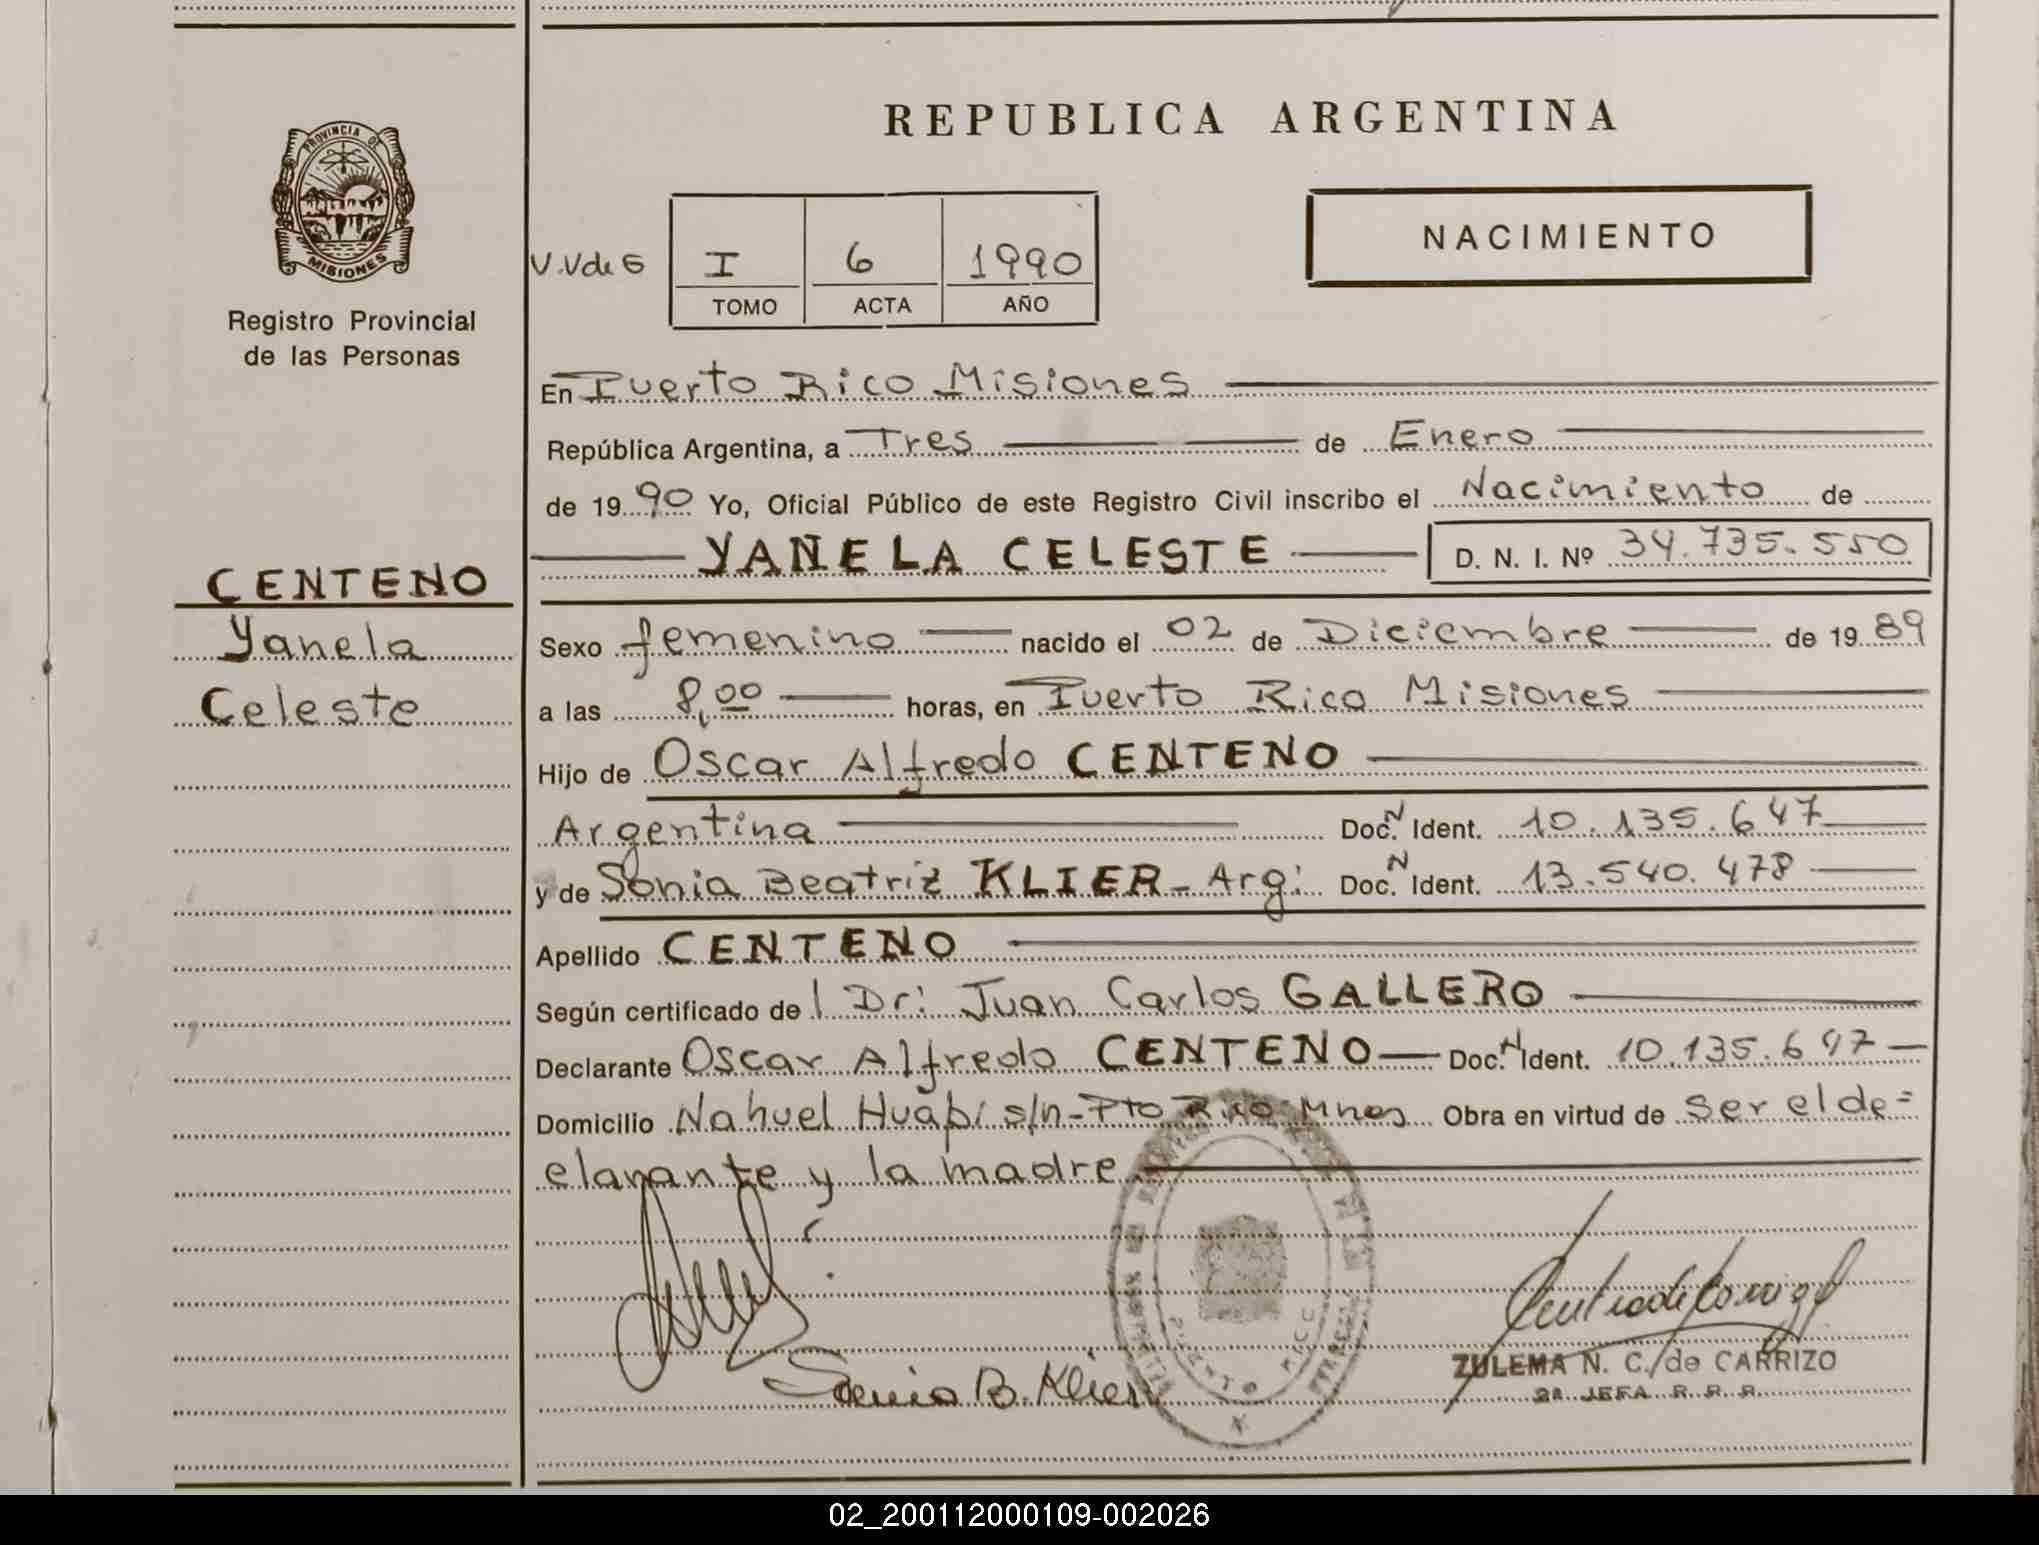 REPUBLICA ARGENTINA
PROVINCIA DE
MISIONES
Registro Provincial
de las Personas
V.V de G
I 6 1990
TOMO ACTA AÑO
NACIMIENTO
En Puerto Rico Misiones
República Argentina, a Tres de Enero
de 19 90 Yo, Oficial Público de este Registro Civil inscribo el Nacimiento de
YANELA CELESTE D. N. I. Nº 34.735.550
CENTENO
Yanela
Celeste
Sexo femenino nacido el 02 de Diciembre de 19 89
a las 8,00 horas, en Puerto Rico Misiones
Hijo de Oscar Alfredo CENTENO
Argentina Doc. N Ident. 10.135.647
y de Sonia Beatriz KLIER - Arg: Doc. N Ident. 13.540.478
Apellido CENTENO
Según certificado de l Dr: Juan Carlos GALLERO
Declarante Oscar Alfredo CENTENO Doc. N Ident. 10.135.647
Domicilio Nahuel Huapi s/n - Pto Rico Mnes Obra en virtud de ser el de=
clarante y la madre
Sonia B. Klier
PUERTO RICO
ZULEMA N. C. de CARRIZO
2ª JEFA R. R. P.
02_200112000109-002026